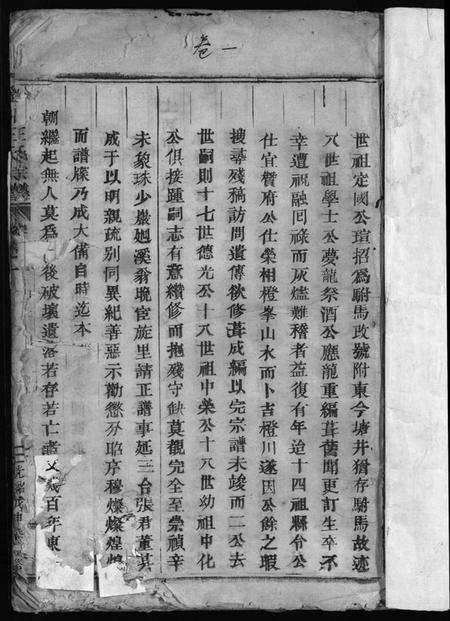 卷一
世祖定國公瑄招為駙馬改號附東今塘井猶存駙馬故迹
八世祖學士公夢龍祭酒公應龍重編葺舊聞更訂生卒不
幸遭祝融回祿而灰燼難稽者益復有年迨十四祖縣令公
仕官贊府公仕榮相橙峯山水而卜吉橙川遂因公餘之暇
搜尋殘稿訪問遺傳欲修葺成編以完宗譜未竣而二公去
世嗣則十七世德光公十八世中榮公十八世幼祖中化
公俱接踵嗣志有意續修而抱殘守缺莫覩完全至崇禎辛
未象珠少巖廻溪翁晚宦旋里請正譜事延三台張君董其
成于以明親疏別同異紀善惡示勸懲分昭序穆燦燦煌煌
而譜牒乃成大備自時迄本
朝繼起無人莫為 後破壞遺落若存若亡者又幾百年東